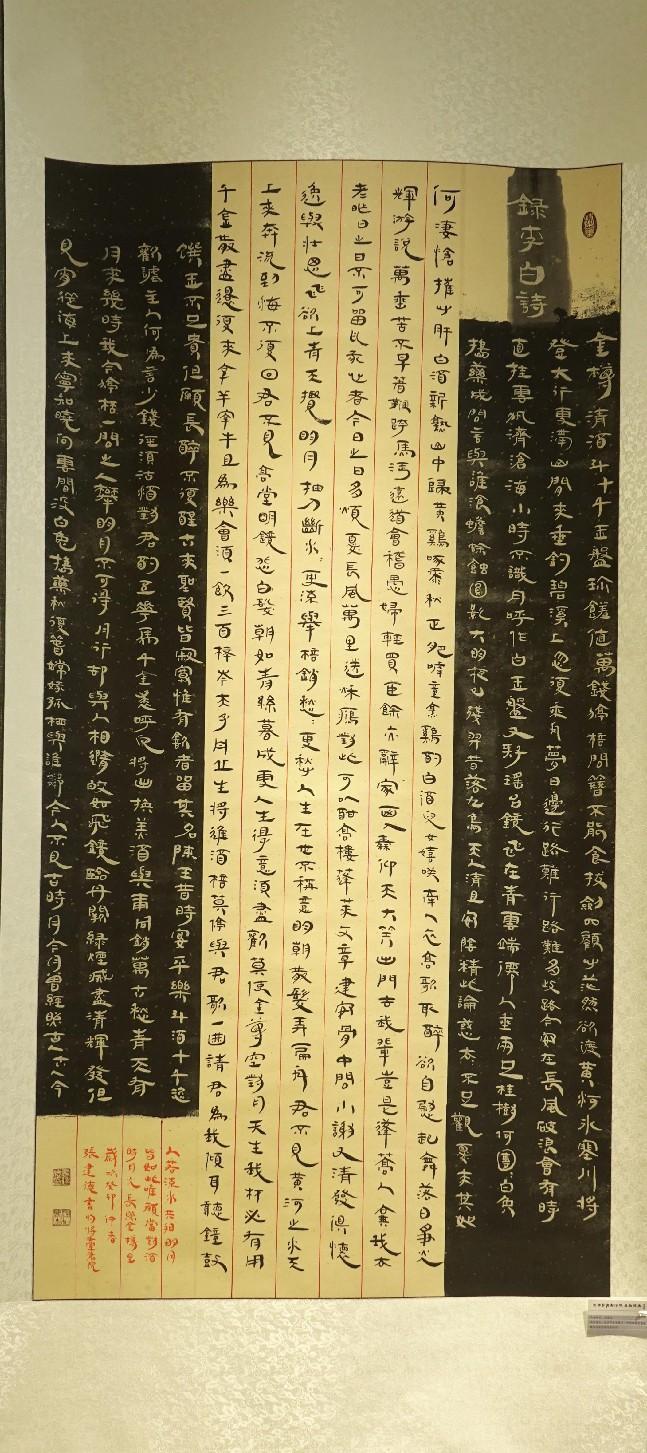 錄李白詩
金樽清酒斗十千玉盤珎饈值萬錢停桮閣簪不能食拔劍四顧心茫然欲渡黃河冰塞川將
登太行雪滿山閒來垂釣碧溪上忽復乘舟夢日邊行路難行路難多歧路今安在長風破浪會有時
直挂雲帆濟滄海小時不識月呼作白玉盤又疑瑤台鏡飛在青雲端仙人垂兩足桂樹何團白兔
擣藥成問言與誰飡蟾蜍蝕圓影大明夜已殘羿昔落九烏天人清且安陰精此淪惑去不足觀憂來其如
何悽愴摧心肝白酒新熟山中歸黃鷄啄黍秋正肥呼童烹鷄酌白酒兒女嬉咲牽人衣高歌取醉欲自慰起舞落日爭光
輝游說萬乘苦不早著鞭跨馬涉遠道會稽愚婦輕買臣余亦辭家西入秦仰天大笑出門去我輩豈是蓬蒿人棄我去
者昨日之日不可留亂我心者今日之日多煩憂長風萬里送秋鴈對此可以酣高樓蓬萊文章建安骨中間小謝又清發俱懷
逸興壯思飛欲上青天攬明月抽刀斷水〻更流舉桮銷愁〻更愁人生在世不稱意明朝散髮弄扁舟君不見黃河之水天
上來奔流到海不復回君不見高堂明鏡悲白髮朝如青絲暮成雪人生得意須盡歡莫使金尊空對月天生我材必有用
千金散盡還復來烹羊宰牛且為樂會須一飲三百桮岑夫子丹丘生將進酒桮莫停與君歌一曲請君為我傾耳聽鐘鼓
饌玉不足貴但願長醉不復醒古來聖賢皆寂寞惟有飲者留其名陳王昔時宴平樂斗酒十千恣
歡謔主人何為言少錢徑須沽取對君酌五花馬千金裘呼兒將出換美酒與爾同銷萬古愁青天有
月來幾時我今停桮一問之人攀明月不可得月行卻與人相隨皎如飛鏡臨丹闕綠煙滅盡清輝發但
見宵從海上來寧知曉向雲間沒白兔擣藥秋復春嫦娥孤栖與誰鄰今人不見古時月今月曾經照古人古人今
人若流水共看明月
皆如此唯願當對酒
時月光長照金樽里
歲次癸卯仲春
張建德書於